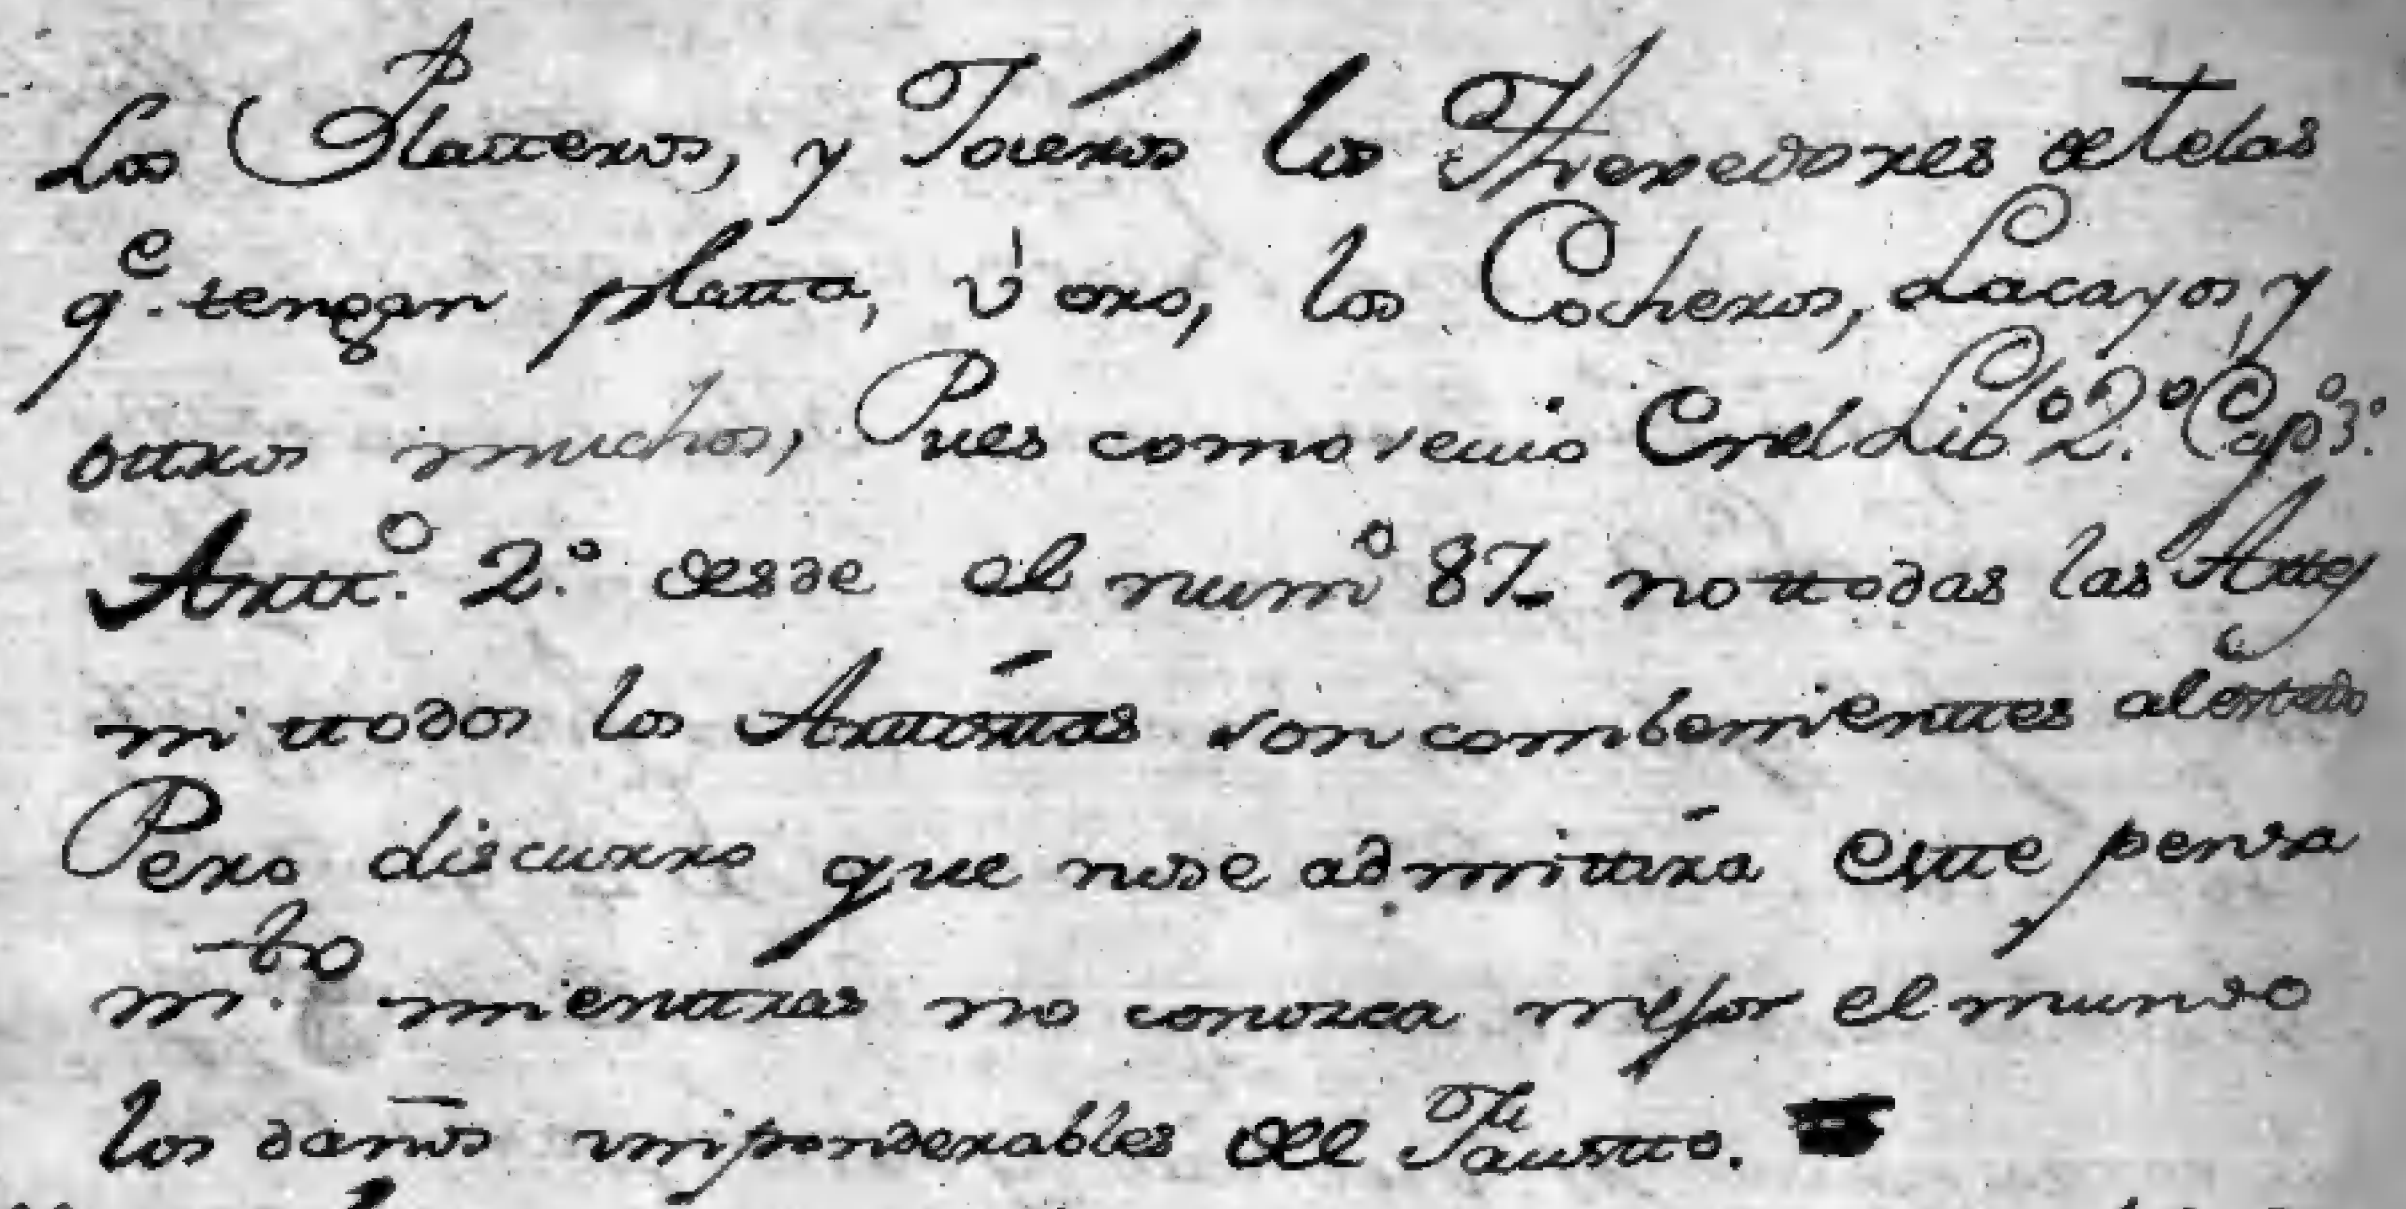 Los Platteros, y Joiéros los Thexedores de telas
q.e tengan platta, ù oro, los Cocheros, Lacayos, y
ottros muchos, Pues como se vio En el Lib.o 2.o Cap.o 3.o
Artt.o 2.o desde el num.o 87. no ttodas las Arttes
ni ttodos los Arttísttas son combenienttes al esttado
Pero discurro que no se admittirá estte pensa
m.to mienttras no conozca mejor el mundo
los daños imponderables del Faustto.